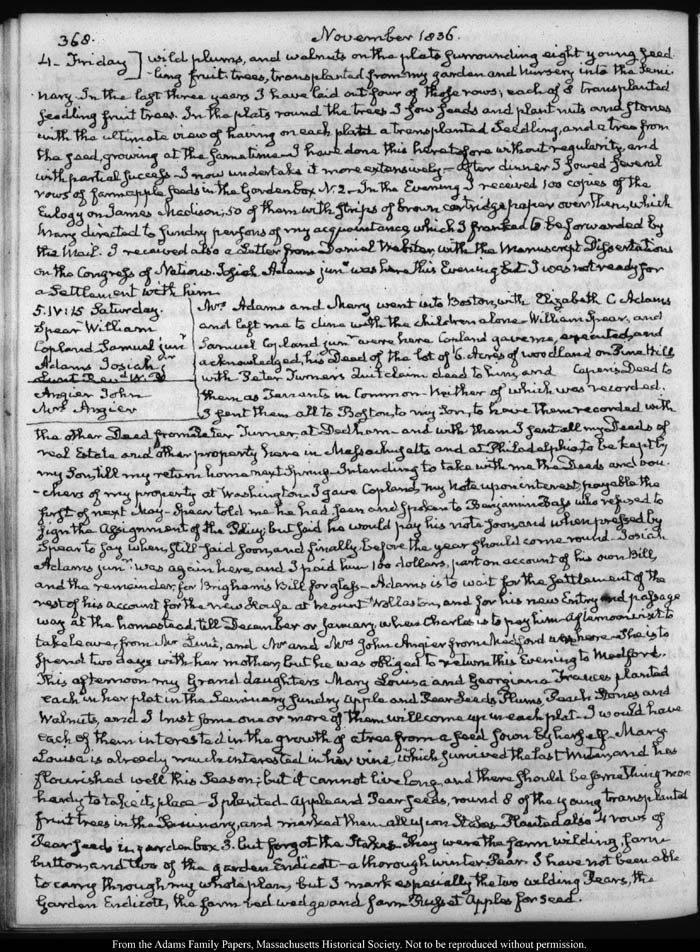 368. November 1836.
4. Friday] wild plums, and walnuts on the plats surrounding eight young seed
-ling fruit trees, transplanted from my garden and nursery into the Semi-
nary. In the last three years I have laid out four of these rows, each of 8 transplanted
seedling fruit trees. In the plats round the trees I sow seeds and plant nuts and stones
with the ultimate view of having on each plat a transplanted Seedling, and a tree from
the seed, growing at the same time. I have done this heretofore without regularity, and
with partial success. I now undertake it more extensively. After dinner I sowed several
rows of farm apple seeds in the Garden box N. 2. In the Evening I received 100 copies of the
Eulogy on James Madison; 50 of them with strips of brown cartridge paper over them, which
Mary directed to sundry persons of my acquaintance which I franked to be forwarded by
the Mail. I received also a Letter from Daniel Webster, with the Manuscript Dissertations
on the Congress of Nations. Josiah Adams junr. was here this Evening but I was not ready for
a Settlement with him.
5. IV:15 Saturday.
Spear William
Copland Samuel junr
Adams Josiah jr
Lunt Revd. W. P.
Angier John
Mrs Angier
Mrs Adams and Mary went into Boston, with Elizabeth C. Adams
and left me to dine with the children alone. William Spear, and
Samuel Copland junr. were here. Copland gave me, executed, and
acknowledged, his Deed of the lot of 6. Acres of woodland on Pine Hill
with Peter Turner's Quitclaim deed to him, and Capen's Deed to
them as Tenants in Common. Neither of which was recorded.
I sent them all to Boston, to my Son, to have them recorded with
the other Deed from Peter Turner, at Dedham and with them I sent all my Deeds of
real Estate and other property here in Massachusetts and at Philadelphia, to be kept by
my Son, till my return home next Spring. Intending to take with me the Deeds and vou-
-chers of my property at Washington. I gave Copland my Note upon interest, payable the
first of next May. Spear told me he had seen and spoken to Benjamin Bass who refused to
sign the Assignment of the Policy; but said he would pay his note soon, and when pressed by
Spear to say when, still said soon, and finally before the year should come round. Josiah
Adams junr. was again here, and I paid him 100 dollars, part on account of his own Bill,
and the remainder, for Brigham's Bill for glass. Adams is to wait for the settlement of the
rest of his account for the new House at Mount Wollaston, and for his new Entry and passage
way at the homestead, till December or January, when Charles is to pay him. Afternoon visit to
take leave, from Mr Lunt, and Mr and Mrs John Angier from Medford were here. She is to
spend two days with her mother, but he was obliged to return this Evening to Medford.
This afternoon my Grand daughters Mary Louisa and Georgiana Frances planted
each in her plat in the Seminary sundry Apple and Pear Seeds, Plums, Peach Stones and
Walnuts, and I trust some one or more of them will come up in each plat. I would have
each of them interested in the growth of a tree from a seed sown by herself. Mary
Louisa is already much interested in her vine, which survived the last Winter, and has
flourished well this Season; but it cannot live long, and there should be something more
hardy to take its place. I planted Apple and Pear seeds, round 8 of the young transplanted
fruit trees in the Seminary, and marked them all upon Stakes. Planted also 4 rows of
Pear seeds in garden box 3. but forgot the Stakes. They were the farm wilding, farm
button, and two of the garden Endicott a thorough winter Pear. I have not been able
to carry through my whole plan, but I mark especially the two wilding Pears, the
Garden Endicott, the farm red wedge and farm Russet Apples for seed.
From the Adams Family Papers, Massachusetts Historical Society. Not to be reproduced without permission.